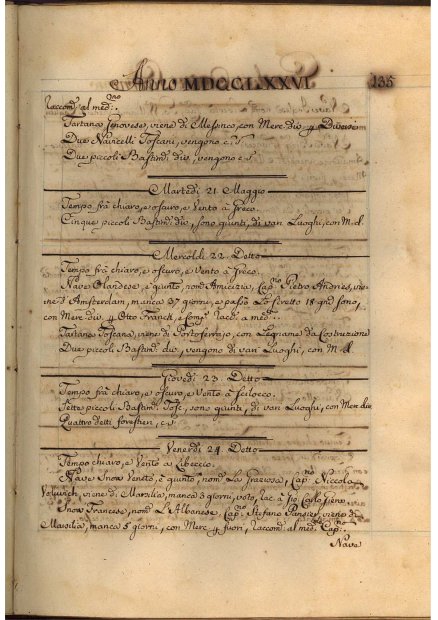 Anno MDCCLXXVI. 135
Raccom: al med:mo
Tartana Genovese, viene di con Merc: div: p Diversi
Due Navicelli Toscani, vengono c: S
Due piccoli Bastim: div: vengono c: S
Martedì 21 Maggio
Tempo frà chiaro, e oscuro, e Vento à Greco.
Cinque piccoli Bastim: div: sono giunti, di van Luoghi, con M: d:
Mercoldì 22 Detto
Tempo frà chiaro, e oscuro, e Vento à Greco.
Nave Olandese, è giunto, nom: Amicizia, Cap:no Pietro Andries, vie=
ne d'Amsterdam, manca 37 giorni, e passò Lo Stretto 18 gnd sono,
con Merc: div: p Otto Franck, e Comp: Racc: a med:
Tartana Toscana, viene di Portoferrajo, con Legname da Costruzione
Due piccoli Bastim: div: vengono di van Luoghi, con M: d:
Giovedì 23 Detto
Tempo frà chiaro, e oscuro, e Vento à Scilocco.
Sette piccoli Bastim: Tosc: sono giunti, di van Luoghi, con Mer: div:
Quattro detti forestieri, c: S
Venerdì 24 Detto
Tempo chiaro, e Vento à Libeccio.
Nave Snow Veneto, è giunto, nom: La Graziosa, Cap:no Niccola
viene di Marsilia, manca 3 giorni, voto, rac: à Gio: Carlo
Snow Francese, nom: L'Albanese, Cap:no Stefano viene di
Marsilia, manca 5 giorni, con Merc: p fuori, Raccom: al med: Cap:no
Nave